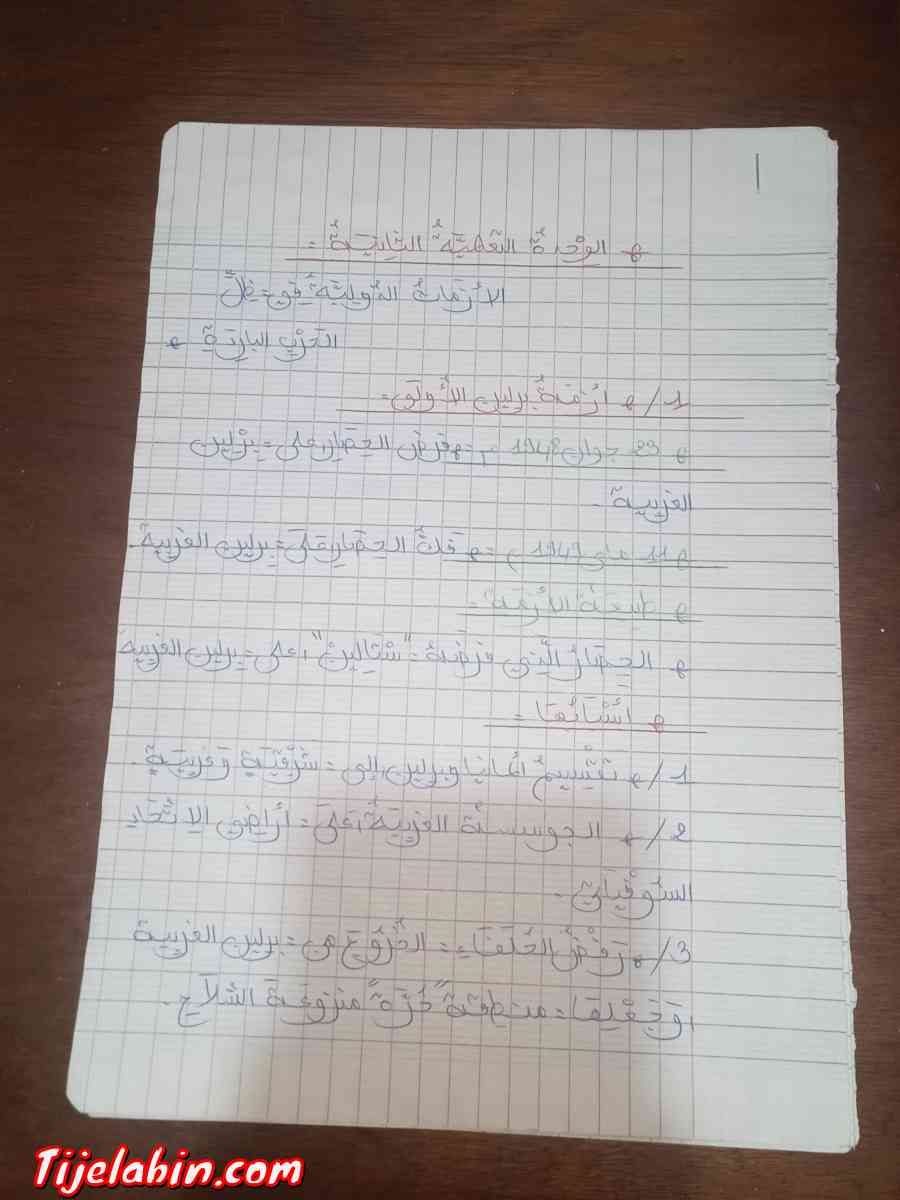 1
* الوحدة التعلمية الثانية =
الأزمات الدولية في ظل
الحرب الباردة *
1/* أزمة برلين الأولى =
* 23 جوان 1948 م = فرض الحصار على = برلين
الغربية.
* 11 ماي 1949 م = فك الحصار على = برلين الغربية.
* طبيعة الأزمة =
* الحصار التي فرضه = "ستالين" على = برلين الغربية
* أسبابها =
1/* تقسيم ألمانيا وبرلين إلى = شرقية وغربية.
2/* الجوسسة الغربية على = أراضي الاتحاد
السوفياتي.
3/* رفض الحلفاء = الخروج من = برلين الغربية
وجعلها = منطقة "حرة" منزوعة السلاح.
Tijelabin.com